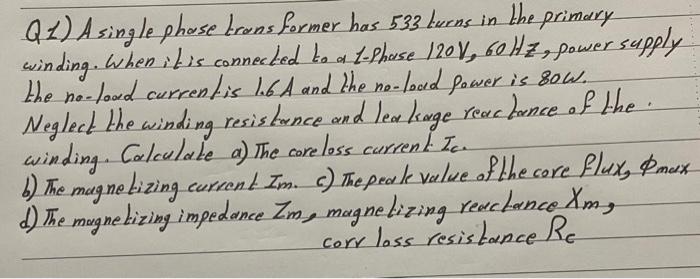 Q1) A single phase transformer has 533 turns in the primary
winding. When it is connected to a 1-Phase 120V, 60 HZ, power supply
the no-load current is 1.6 A and the no-load power is 80W.
Neglect the winding resistance and leakage reactance of the
winding. Calculate a) The core loss current Ic.
b) The magnetizing current Im. c) The peak value of the core flux, Φmax
d) The magnetizing impedance Zm, magnetizing reactance Xm,
corr loss resistance Rc